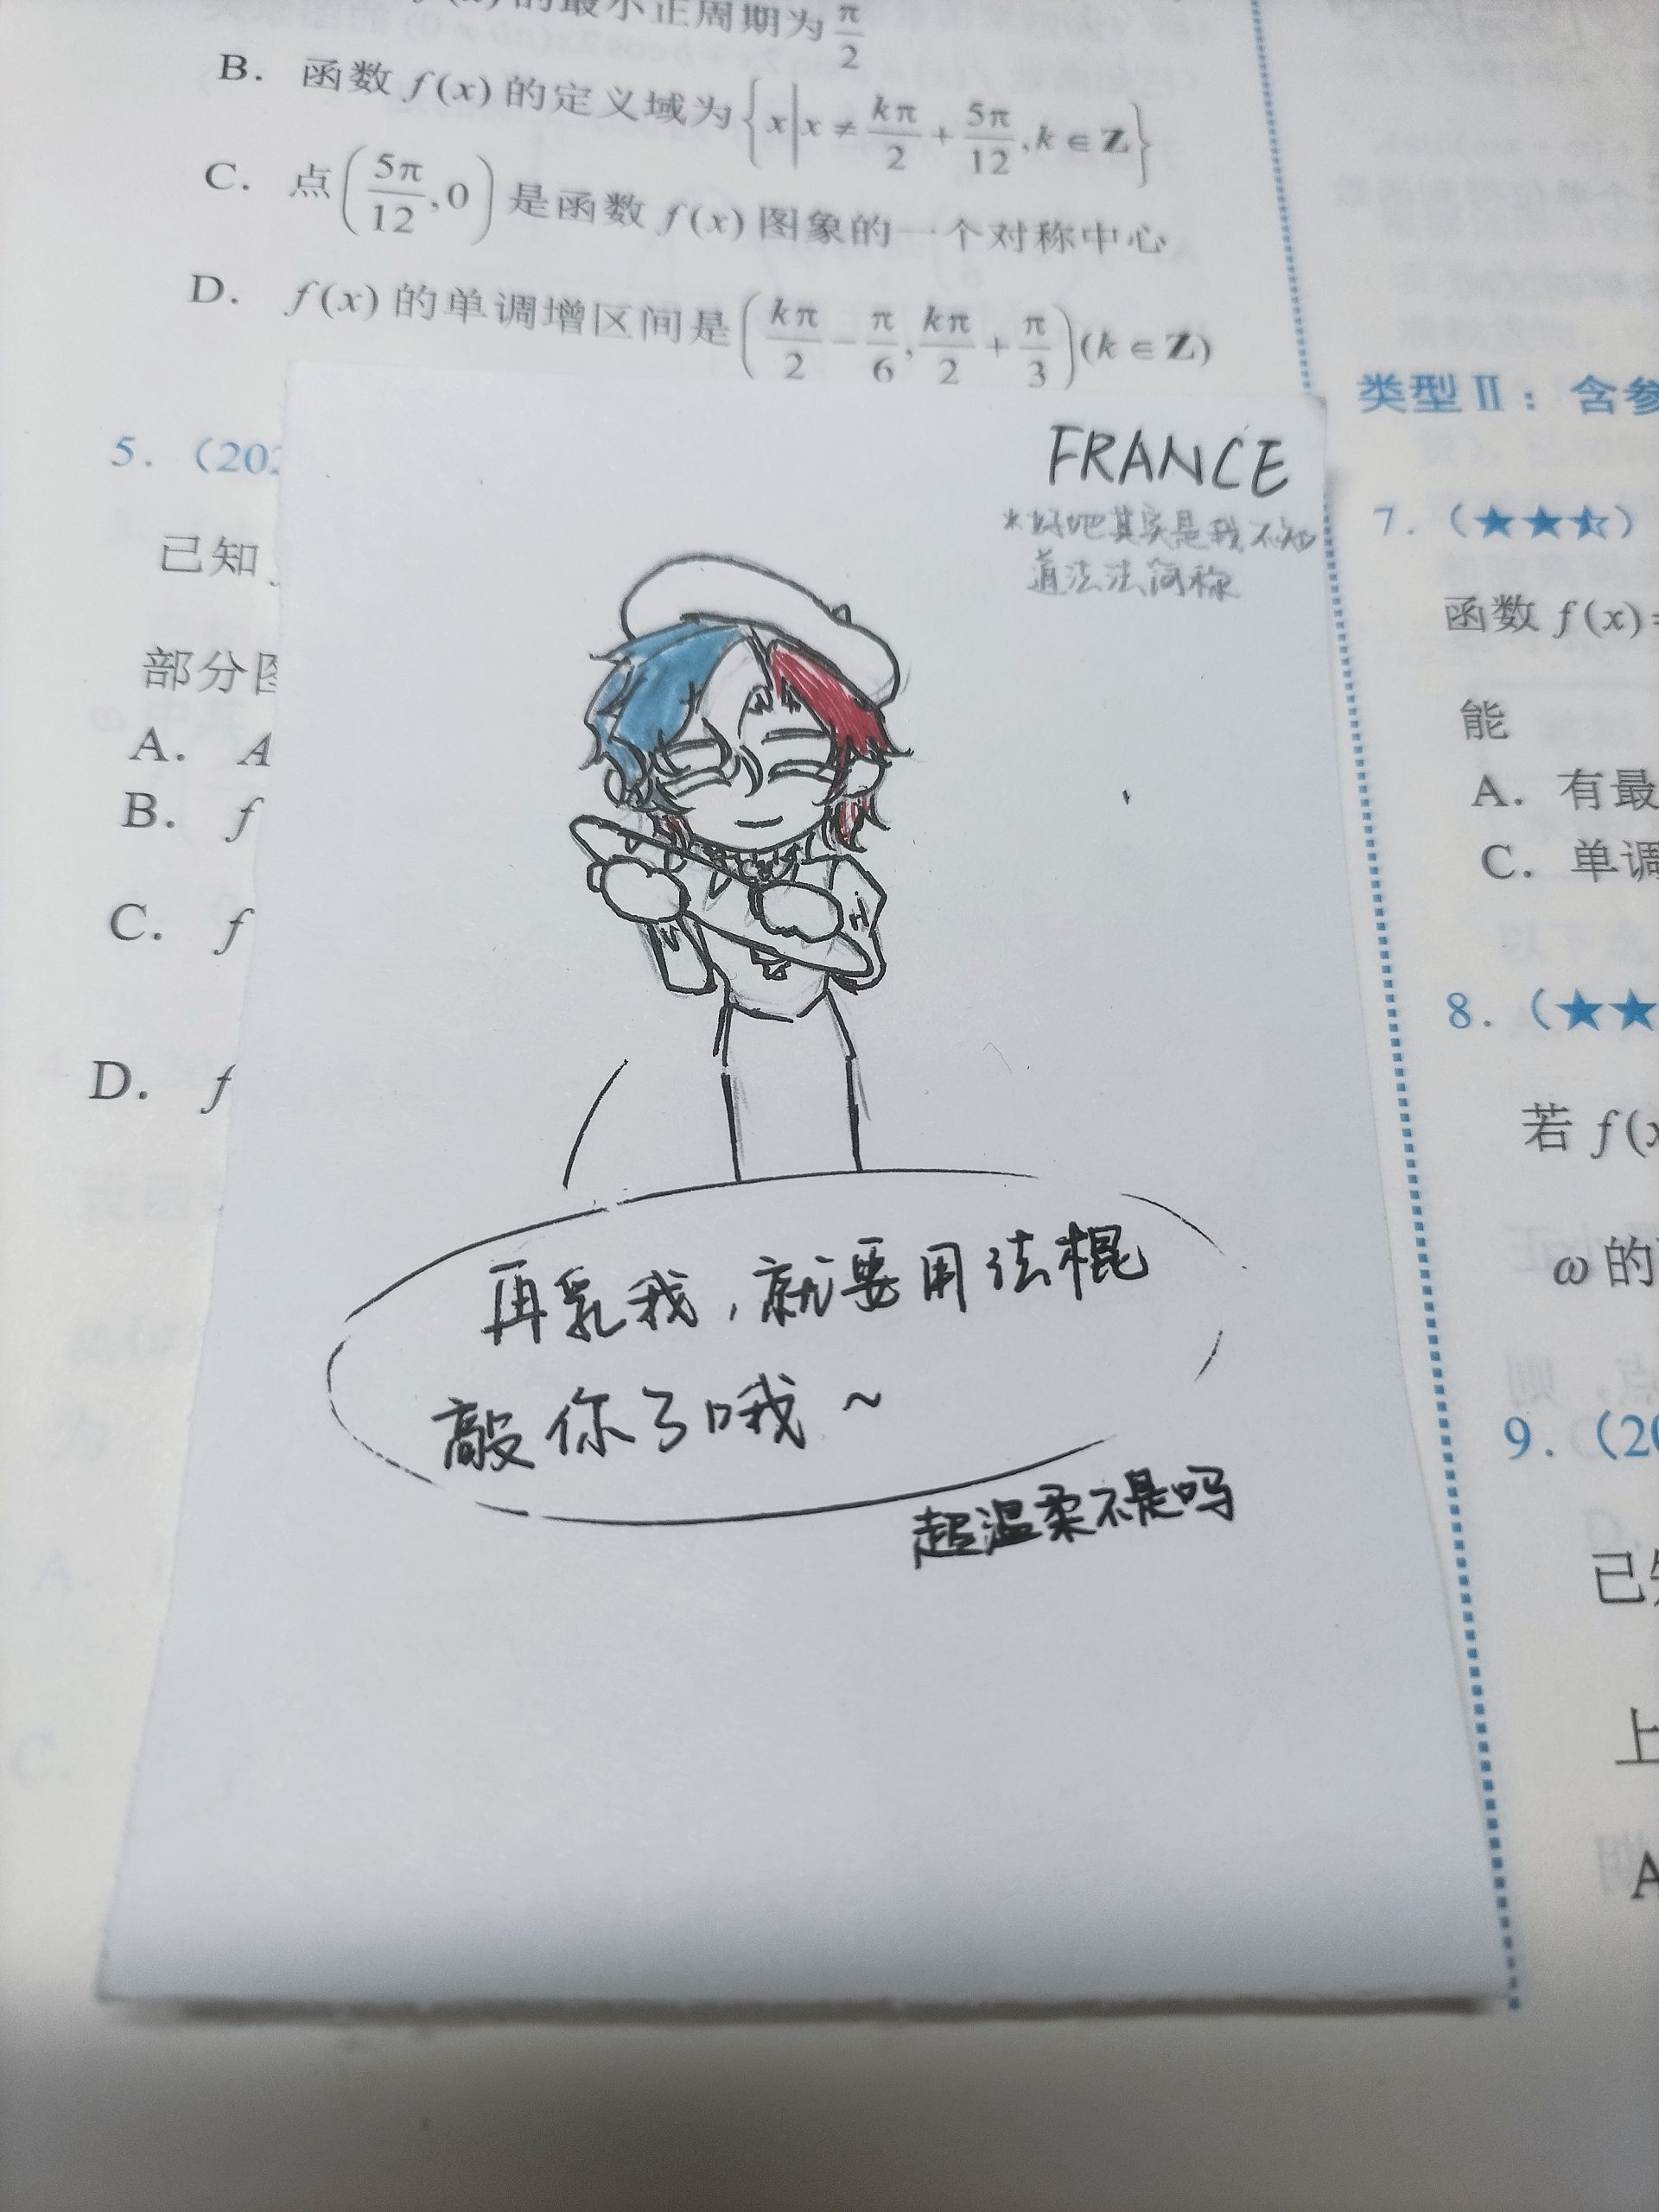 f(x)的最小正周期为π/2
B. 函数 f(x) 的定义域为{x|x≠kπ/2+5π/12,k∈Z}
C. 点(5π/12,0)是函数 f(x) 图象的一个对称中心
D. f(x) 的单调增区间是(kπ/2-π/6,kπ/2+π/3)(k∈Z)
5.（202
已知
部分图
A. A
B. f
C. f
D. f
FRANCE
*好吧其实是我不知
道法法简称
再乳我，就要用法棍
敲你了哦～
超温柔不是吗
类型Ⅱ：含参
7.（★★⯪）
函数 f(x)=
能
A. 有最
C. 单调
8.（★★
若 f(x
ω 的
9.（20
已知
上
A